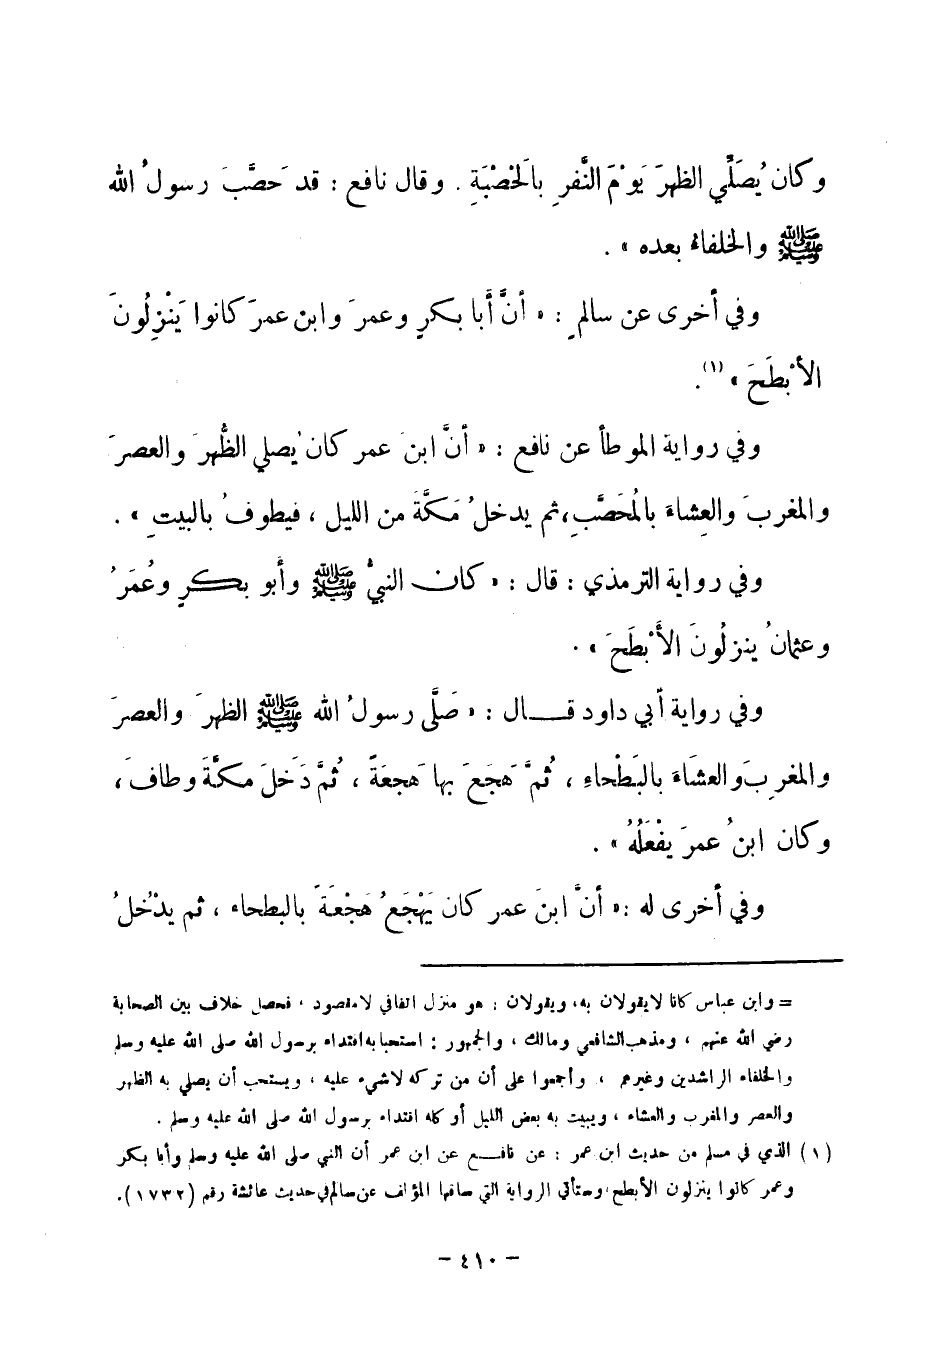 وكان يُصَلِّي الظهرَ يَوْمَ النَّفرِ بالحَصْبَةِ . وقال نافع : قد حَصَّبَ رسولُ الله
ﷺ والخلفاءُ بعده » .
وفي أخرى عن سالمٍ : « أنَّ أبا بكرٍ وعمرَ وابن عمرَ كانوا يَنْزِلُونَ
الأبْطَحَ » (١) .
وفي رواية الموطأ عن نافع : « أنَّ ابنَ عمر كان يُصلي الظُّهرَ والعصرَ
والمغربَ والعِشاءَ بالمُحَصَّبِ، ثم يدخلُ مَكَّةَ من الليل ، فيطوفُ بالبيتِ » .
وفي رواية الترمذي : قال : « كان النبيُّ ﷺ وأبو بكرٍ وعُمَرُ
وعثمانُ ينزلُونَ الأَبْطَحَ » .
وفي رواية أبي داود قال : « صَلَّى رسولُ الله ﷺ الظهرَ والعصرَ
والمغربَ والعشَاءَ بالبَطْحاءِ ، ثُمَّ هَجَعَ بها هَجعَةً ، ثُمَّ دَخَلَ مكَّةَ وطافَ ،
وكان ابنُ عمرَ يفْعَلُهُ » .
وفي أخرى له : « أنَّ ابنَ عمر كان يَهْجَعُ هَجْعَةً بالبطحاء ، ثم يدْخُلُ
= وابن عباس كانا لايقولان به، ويقولان : هو منزل اتفاقي لامقصود ، فحصل خلاف بين الصحابة
رضي الله عنهم ، ومذهب الشافعي ومالك ، والجمهور : استحبابه اقتداء برسول الله صلى الله عليه وسلم
والخلفاء الراشدين وغيرهم ، وأجمعوا على أن من تركه لاشيء عليه ، ويستحب أن يصلي به الظهر
والعصر والمغرب والعشاء ، ويبيت به بعض الليل أو كله اقتداء برسول الله صلى الله عليه وسلم .
(١) الذي في مسلم من حديث ابن عمر : عن نافع عن ابن عمر أن النبي صلى الله عليه وسلم وأبا بكر
وعمر كانوا ينزلون الأبطح، وستأتي الرواية التي ساقها المؤلف عن سالم في حديث عائشة رقم (١٧٣٢).
- ٤١٠ -